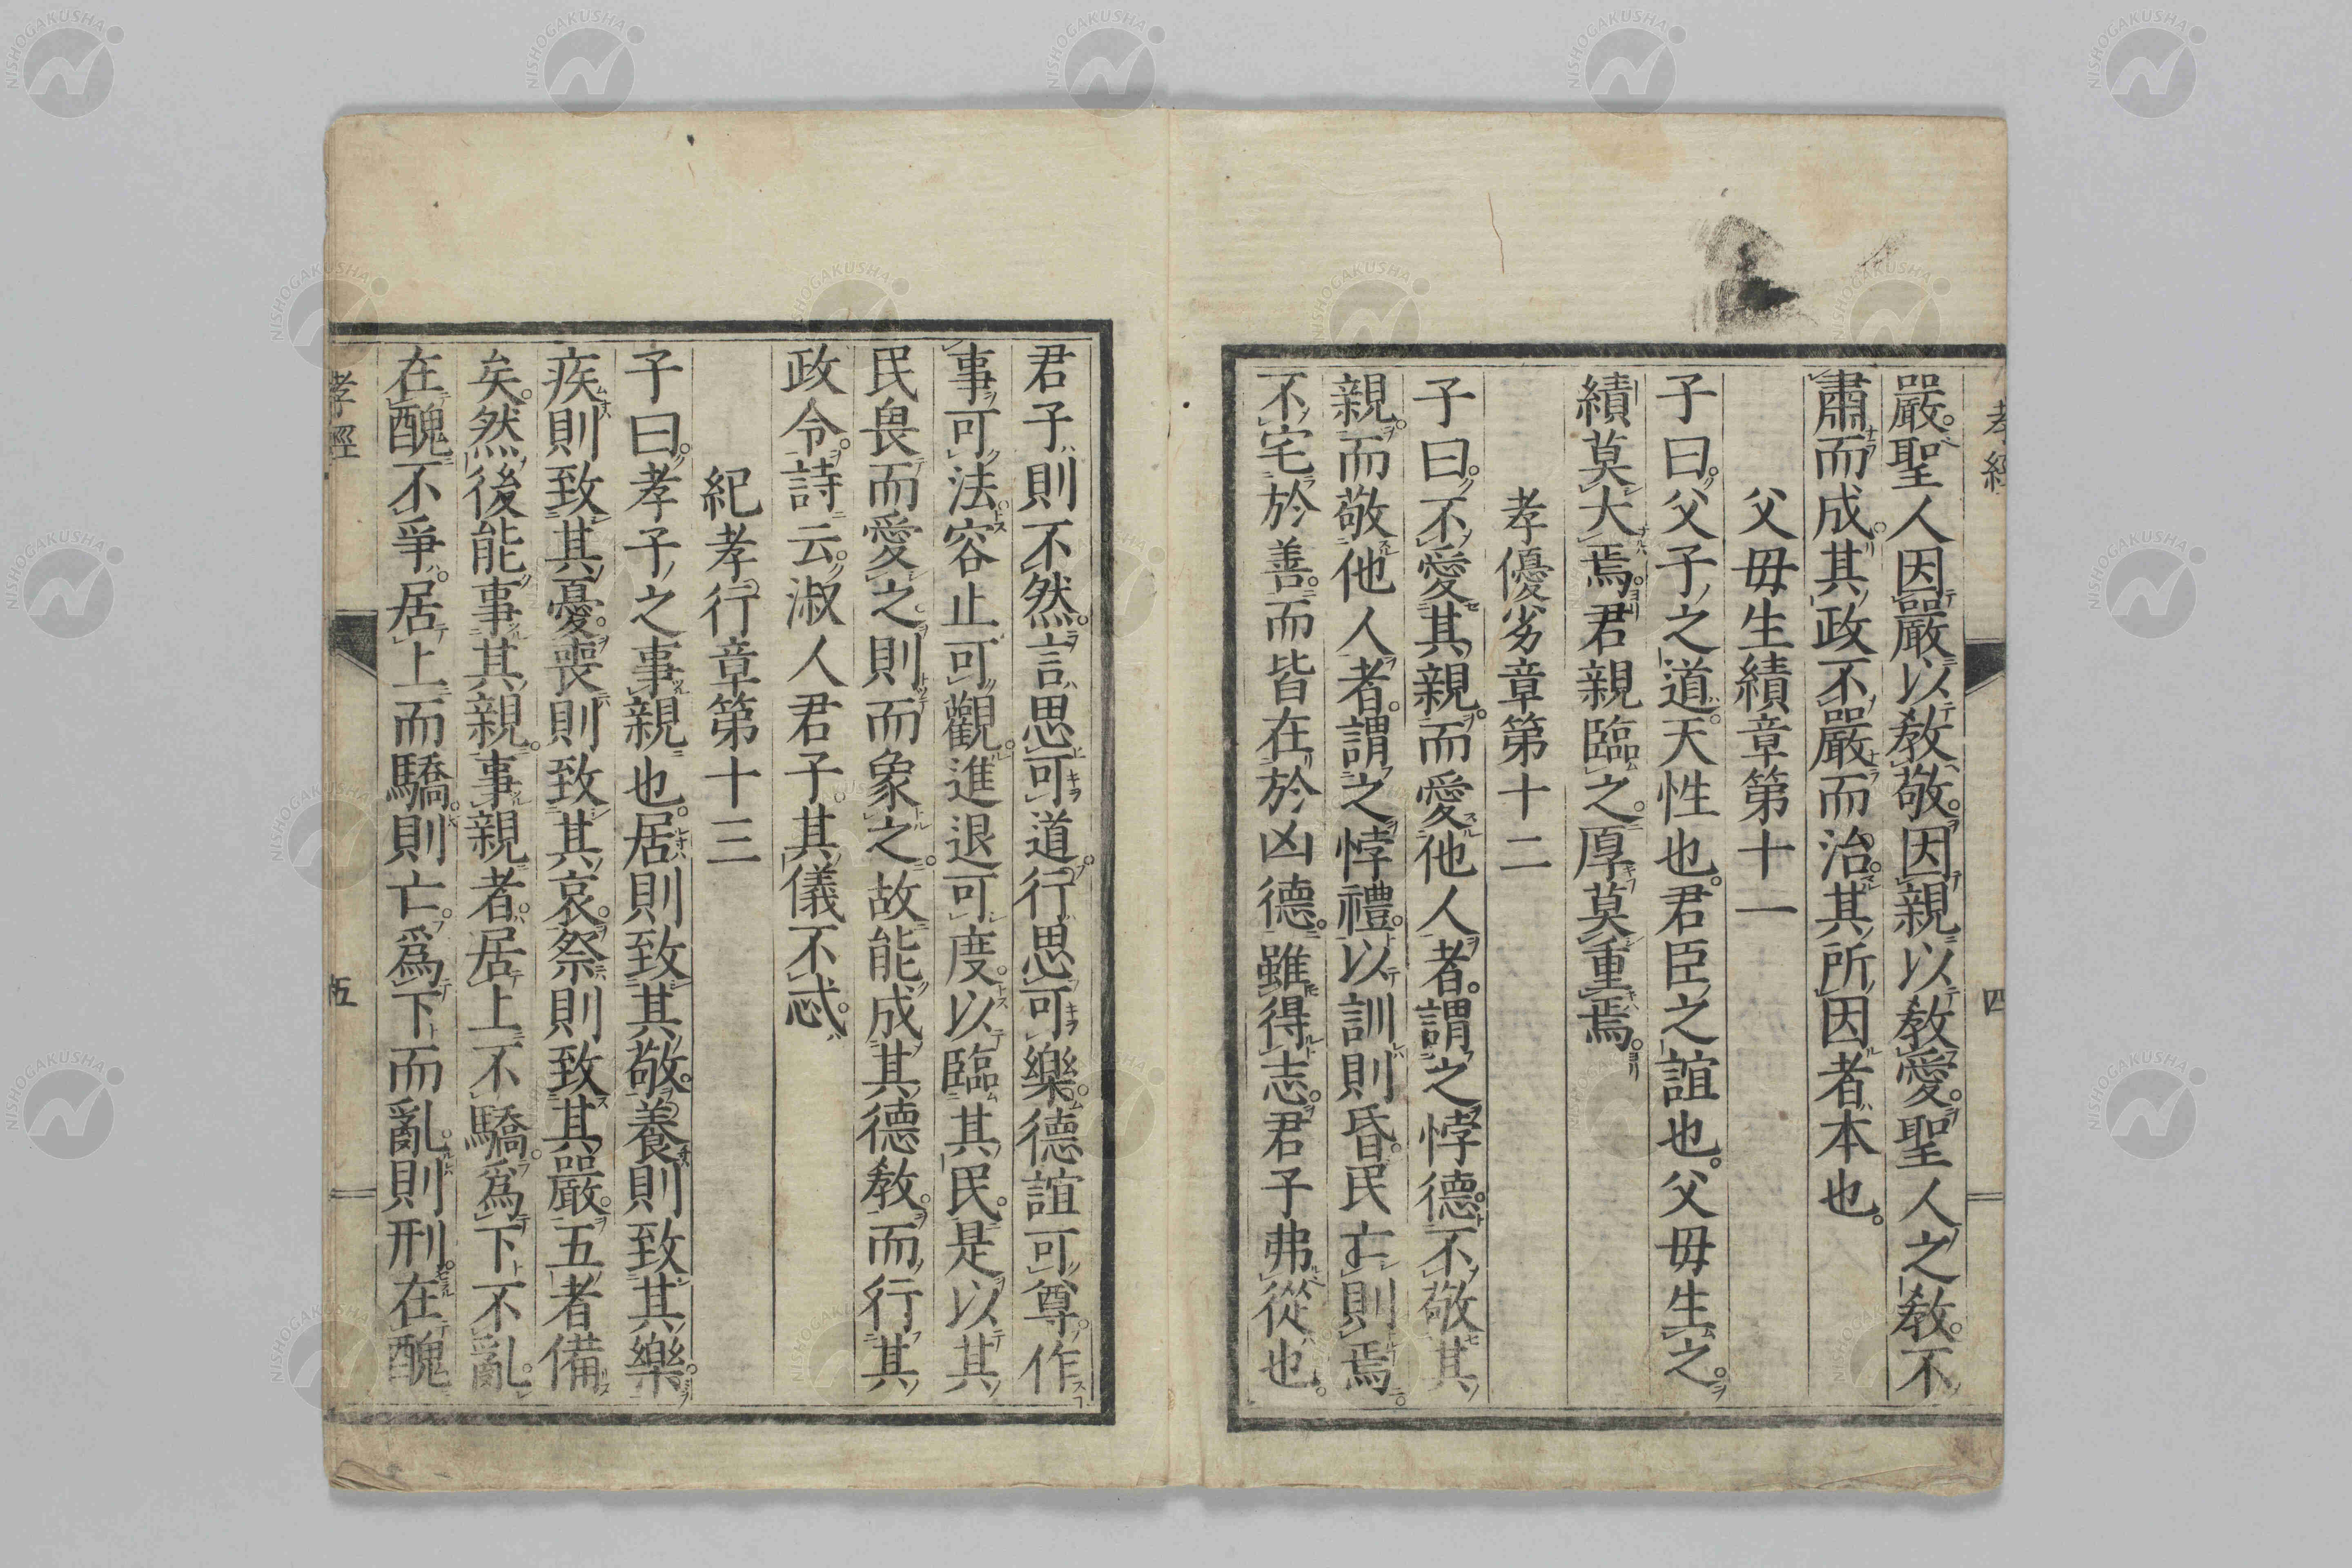 孝經
四
嚴。聖人因嚴以教敬。因親以教愛。聖人之教。不
肅而成。其政不嚴而治。其所因者本也。
父母生績章第十一
子曰。父子之道。天性也。君臣之誼也。父母生之。
績莫大焉。君親臨之。厚莫重焉。
孝優劣章第十二
子曰。不愛其親。而愛他人者。謂之悖德。不敬其
親。而敬他人者。謂之悖禮。以訓則昏。民亡則焉。
不宅於善。而皆在於凶德。雖得志。君子弗從也。
君子則不然。言思可道。行思可樂。德誼可尊。作
事可法。容止可觀。進退可度。以臨其民。是以其
民畏而愛之。則而象之。故能成其德教。而行其
政令。詩云。淑人君子。其儀不忒。
紀孝行章第十三
子曰。孝子之事親也。居則致其敬。養則致其樂。
疾則致其憂。喪則致其哀。祭則致其嚴。五者備
矣。然後能事其親。事親者。居上不驕。爲下不亂。
在醜不爭。居上而驕。則亡。爲下而亂。則刑。在醜
孝經
五